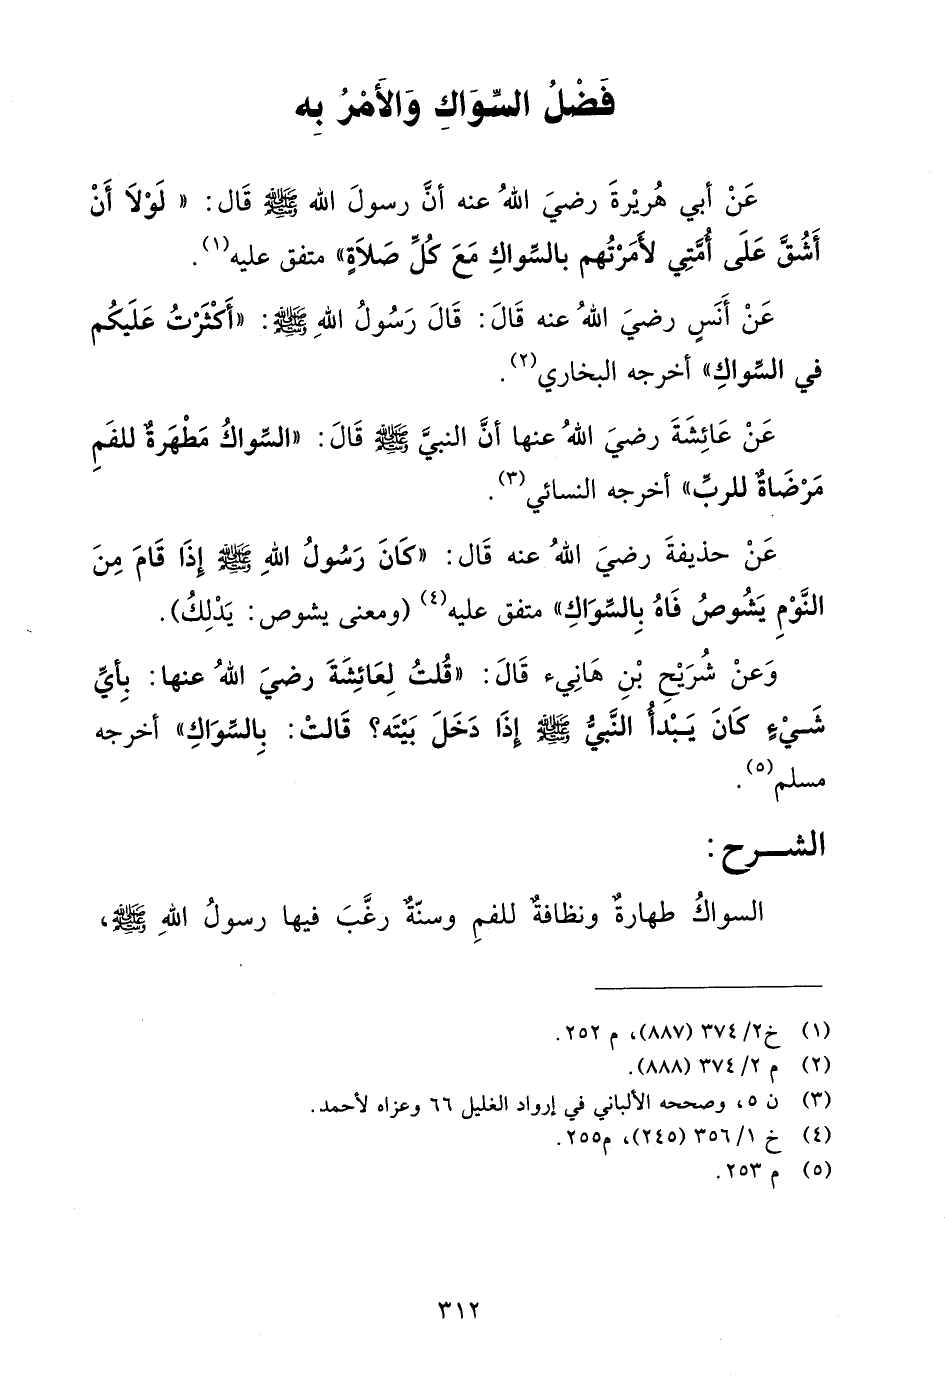 فَضْلُ السِّوَاكِ وَالأَمْرُ بِه
عَنْ أبي هُريْرةَ رضيَ اللهُ عنه أنَّ رسولَ الله ﷺ قَال: « لَوْلاَ أَنْ
أَشُقَّ عَلَى أُمَّتِي لأَمَرْتُهم بالسِّواكِ مَعَ كُلِّ صَلاَةٍ» متفق عليه(١).
عَنْ أَنَسٍ رضيَ اللهُ عنه قَالَ: قَالَ رَسُولُ اللهِ ﷺ: «أَكْثَرْتُ عَلَيكُم
في السِّواكِ» أخرجه البخاري(٢).
عَنْ عَائِشَةَ رضيَ اللهُ عنها أنَّ النبيَّ ﷺ قَالَ: «السِّواكُ مَطْهَرةٌ للفَمِ
مَرْضَاةٌ للربِّ» أخرجه النسائي(٣).
عَنْ حذيفةَ رضيَ اللهُ عنه قَال: «كَانَ رَسُولُ اللهِ ﷺ إِذَا قَامَ مِنَ
النَّوْمِ يَشُوصُ فَاهُ بِالسِّوَاكِ» متفق عليه(٤) (ومعنى يشوص: يَدْلِكُ).
وَعنْ شُرَيْحِ بْنِ هَانِيء قَالَ: «قُلتُ لِعَائِشَةَ رضيَ اللهُ عنها: بِأيِّ
شَيْءٍ كَانَ يَبْدأُ النَّبيُّ ﷺ إِذَا دَخَلَ بَيْتَه؟ قَالتْ: بِالسِّوَاكِ» أخرجه
مسلم(٥).
الشـــرح:
السواكُ طهارةٌ ونظافةٌ للفمِ وسنّةٌ رغَّبَ فيها رسولُ اللهِ ﷺ،
(١) خ٢/ ٣٧٤ (٨٨٧)، م ٢٥٢.
(٢) م ٢/ ٣٧٤ (٨٨٨).
(٣) ن ٥، وصححه الألباني في إرواد الغليل ٦٦ وعزاه لأحمد.
(٤) خ ١/ ٣٥٦ (٢٤٥)، م٢٥٥.
(٥) م ٢٥٣.
٣١٢